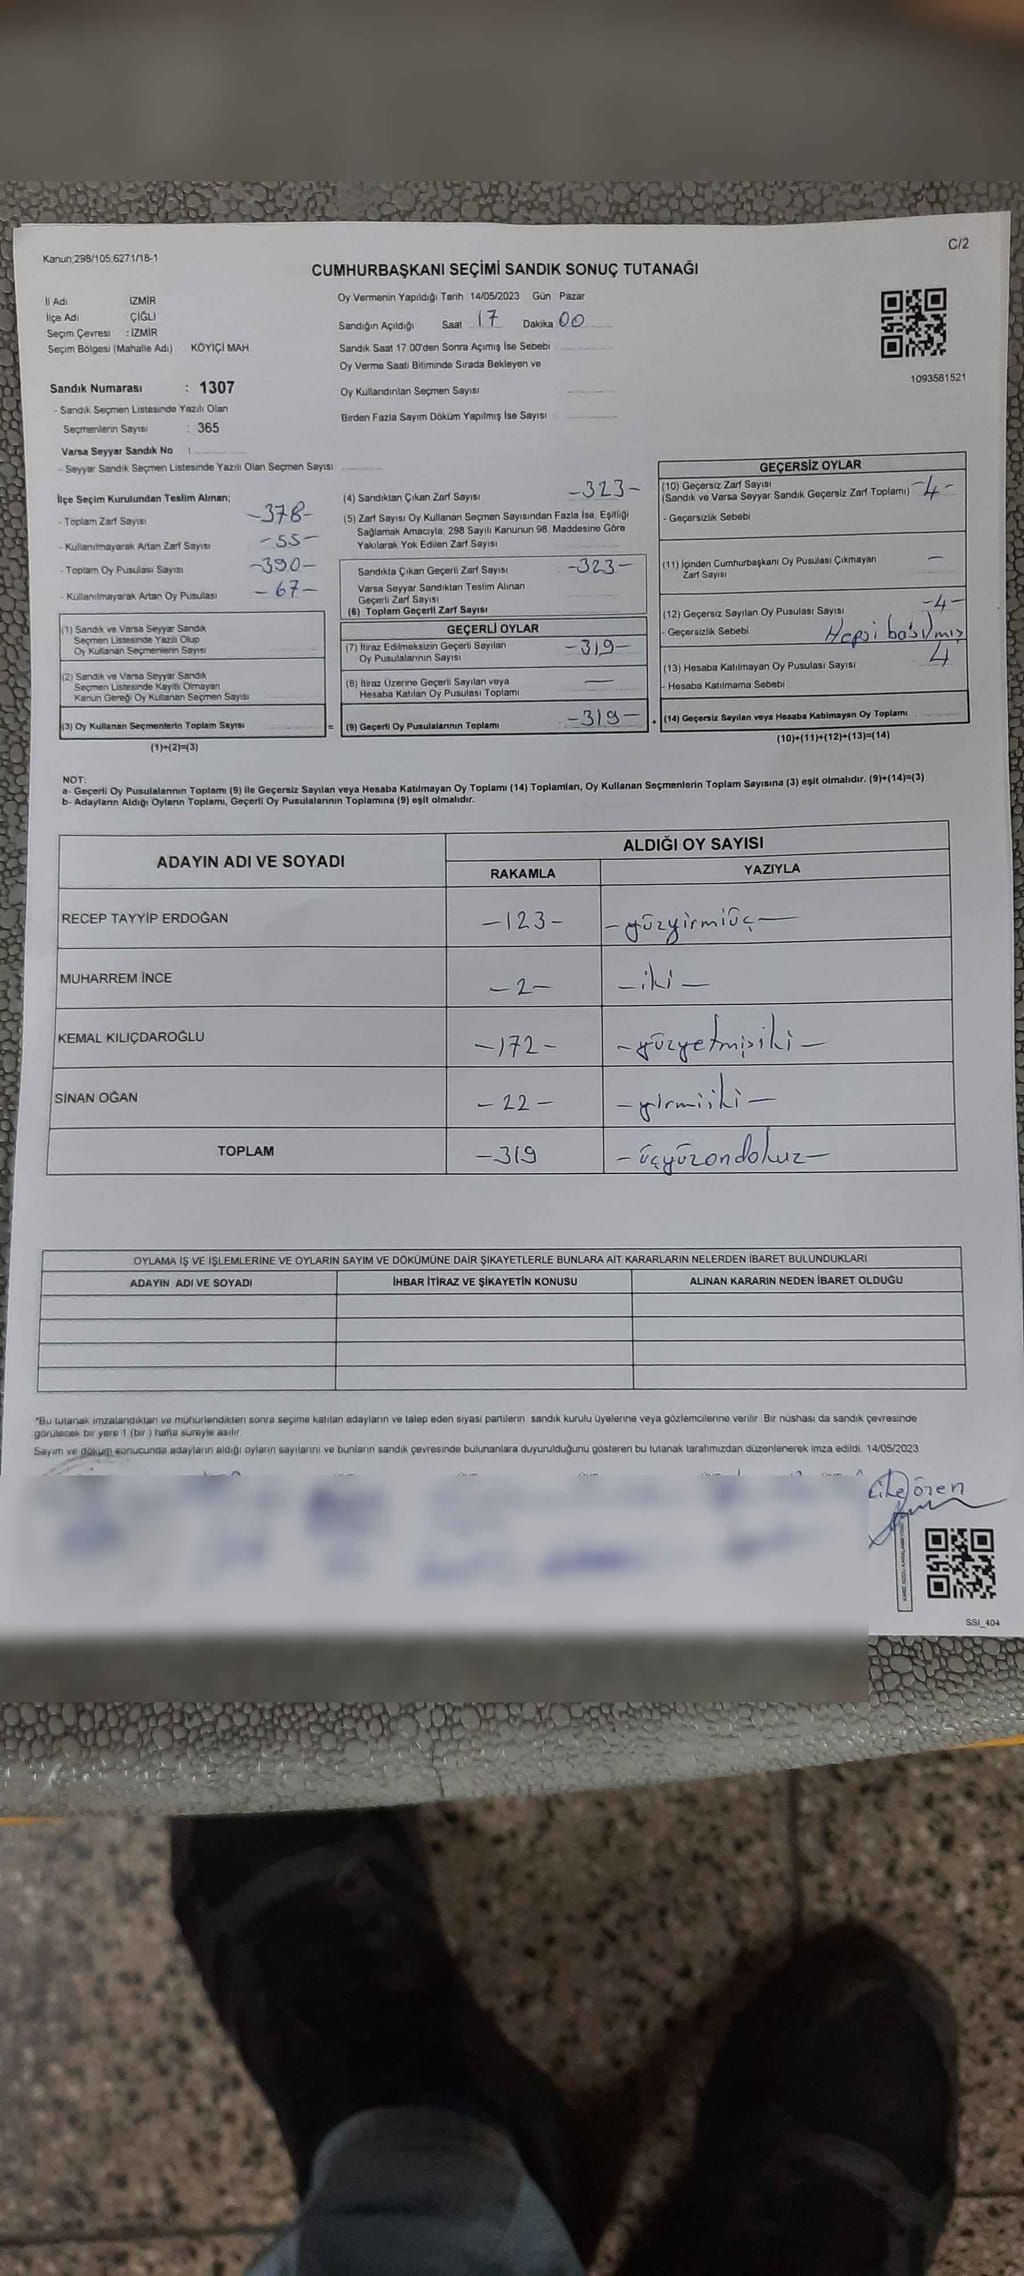 Kanun;298/105;6271/18-1
C/2
CUMHURBAŞKANI SEÇİMİ SANDIK SONUÇ TUTANAĞI
İl Adı İZMİR
İlçe Adı ÇİĞLİ
Seçim Çevresi : İZMİR
Seçim Bölgesi (Mahalle Adı) KÖYİÇİ MAH.
Oy Vermenin Yapıldığı Tarih 14/05/2023 Gün Pazar
Sandığın Açıldığı Saat 17 Dakika 00
Sandık Saat 17.00'den Sonra Açılmış İse Sebebi
Oy Verme Saati Bitiminde Sırada Bekleyen ve
Oy Kullandırılan Seçmen Sayısı
Birden Fazla Sayım Döküm Yapılmış İse Sayısı :
1093581521
Sandık Numarası : 1307
- Sandık Seçmen Listesinde Yazılı Olan
Seçmenlerin Sayısı : 365
Varsa Seyyar Sandık No :
- Seyyar Sandık Seçmen Listesinde Yazılı Olan Seçmen Sayısı
İlçe Seçim Kurulundan Teslim Alınan;
- Toplam Zarf Sayısı -378-
- Kullanılmayarak Artan Zarf Sayısı -55-
- Toplam Oy Pusulası Sayısı -390-
- Kullanılmayarak Artan Oy Pusulası -67-
(1) Sandık ve Varsa Seyyar Sandık
Seçmen Listesinde Yazılı Olup
Oy Kullanan Seçmenlerin Sayısı
(2) Sandık ve Varsa Seyyar Sandık
Seçmen Listesinde Kayıtlı Olmayan
Kanun Gereği Oy Kullanan Seçmen Sayısı
(3) Oy Kullanan Seçmenlerin Toplam Sayısı =
(1)+(2)=(3)
(4) Sandıktan Çıkan Zarf Sayısı -323-
(5) Zarf Sayısı Oy Kullanan Seçmen Sayısından Fazla İse, Eşitliği
Sağlamak Amacıyla, 298 Sayılı Kanunun 98. Maddesine Göre
Yakılarak Yok Edilen Zarf Sayısı
Sandıkta Çıkan Geçerli Zarf Sayısı -323-
Varsa Seyyar Sandıktan Teslim Alınan
Geçerli Zarf Sayısı
(6) Toplam Geçerli Zarf Sayısı
GEÇERLİ OYLAR
(7) İtiraz Edilmeksizin Geçerli Sayılan
Oy Pusulalarının Sayısı -319-
(8) İtiraz Üzerine Geçerli Sayılan veya
Hesaba Katılan Oy Pusulası Toplamı —
(9) Geçerli Oy Pusulalarının Toplamı -319-
GEÇERSİZ OYLAR
(10) Geçersiz Zarf Sayısı
(Sandık ve Varsa Seyyar Sandık Geçersiz Zarf Toplamı) -4-
- Geçersizlik Sebebi
(11) İçinden Cumhurbaşkanı Oy Pusulası Çıkmayan
Zarf Sayısı —
(12) Geçersiz Sayılan Oy Pusulası Sayısı -4-
- Geçersizlik Sebebi Hepsi basılmış
4
(13) Hesaba Katılmayan Oy Pusulası Sayısı
- Hesaba Katılmama Sebebi
(14) Geçersiz Sayılan veya Hesaba Katılmayan Oy Toplamı
(10)+(11)+(12)+(13)=(14)
NOT:
a- Geçerli Oy Pusulalarının Toplamı (9) ile Geçersiz Sayılan veya Hesaba Katılmayan Oy Toplamı (14) Toplamları, Oy Kullanan Seçmenlerin Toplam Sayısına (3) eşit olmalıdır. (9)+(14)=(3)
b- Adayların Aldığı Oyların Toplamı, Geçerli Oy Pusulalarının Toplamına (9) eşit olmalıdır.
ADAYIN ADI VE SOYADI ALDIĞI OY SAYISI
RAKAMLA YAZIYLA
RECEP TAYYİP ERDOĞAN -123- -yüzyirmiüç-
MUHARREM İNCE -2- -iki-
KEMAL KILIÇDAROĞLU -172- -yüzyetmişiki-
SİNAN OĞAN -22- -yirmiiki-
TOPLAM -319 -üçyüzondokuz-
OYLAMA İŞ VE İŞLEMLERİNE VE OYLARIN SAYIM VE DÖKÜMÜNE DAİR ŞİKAYETLERLE BUNLARA AİT KARARLARIN NELERDEN İBARET BULUNDUKLARI
ADAYIN ADI VE SOYADI İHBAR İTİRAZ VE ŞİKAYETİN KONUSU ALINAN KARARIN NEDEN İBARET OLDUĞU
*Bu tutanak imzalandıktan ve mühürlendikten sonra seçime katılan adayların ve talep eden siyasi partilerin sandık kurulu üyelerine veya gözlemcilerine verilir. Bir nüshası da sandık çevresinde
görülecek bir yere 1 (bir) hafta süreyle asılır.
Sayım ve döküm sonucunda adayların aldığı oyların sayılarını ve bunların sandık çevresinde bulunanlara duyurulduğunu gösteren bu tutanak tarafımızdan düzenlenerek imza edildi. 14/05/2023
ören
SSI_404